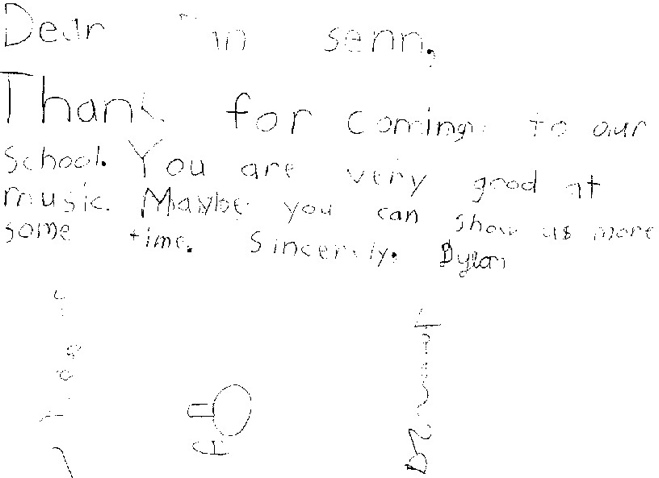 Dear senn,
Thank for coming to our
School. You are very good at
music. Maybe you can show us more
some time. Sincerely. Dylan